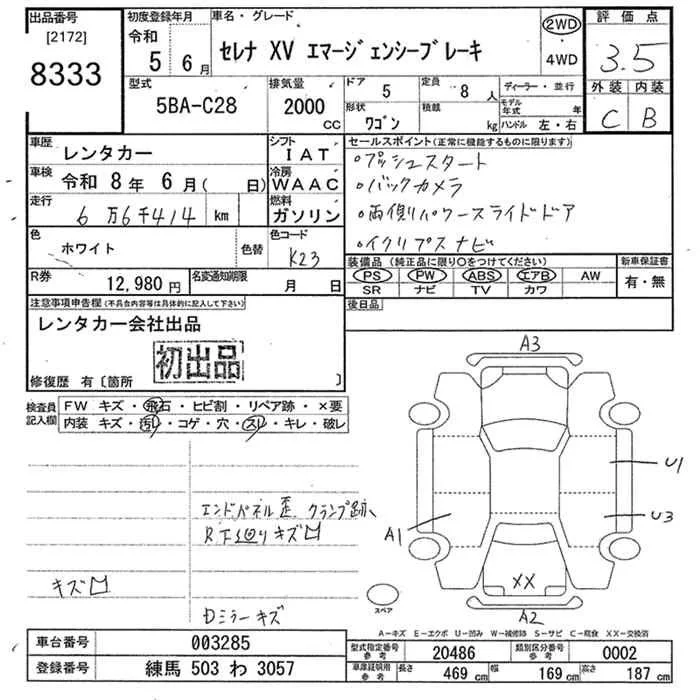 出品番号
[2172]
8333
初度登録年月
令和
5 6月
車名・グレード
セレナ XV エマージェンシーブレーキ
2WD
・
4WD
評価点
3.5
外装 内装
C B
型式
5BA-C28
排気量
2000
CC
ドア
5
定員
8 人
形状
ワゴン
積載
kg
ディーラー・並行
モデル年式 年
ハンドル 左・右
車歴
レンタカー
シフト
IAT
車検
令和 8年 6月( 日)
冷房
WAAC
走行
6万6千414 km
燃料
ガソリン
色
ホワイト
色替
色コード
K23
R券
12,980 円
名変通知期限
月 日
セールスポイント(正常に機能するものに限ります)
・プッシュスタート
・バックカメラ
・両側パワースライドドア
・イクリプスナビ
装備品 (純正品に限り○をつけてください)
PS PW ABS エアB AW
SR ナビ TV カワ
新車保証書
有・無
後日品
注意事項申告欄(不具合内容等は具体的に記入して下さい)
レンタカー会社出品
初出品
修復歴 有〔箇所 〕
検査員
記入欄
FW キズ・飛石・ヒビ割・リペア跡・×要
内装 キズ・汚レ・コゲ・穴・スレ・キレ・破レ
エンドパネル歪、クランプ跡、
R下廻りキズ凹
キズ凹
Dミラーキズ
A3
U1
U3
A1
XX
A2
スペア
A-キズ E-エクボ U-凹み W-補修跡 S-サビ C-腐食 XX-交換済
車台番号
003285
登録番号
練馬 503 わ 3057
型式指定番号
参考
20486
類別区分番号
参考
0002
車庫証明用
参考
長さ
469 cm
幅
169 cm
高さ
187 cm